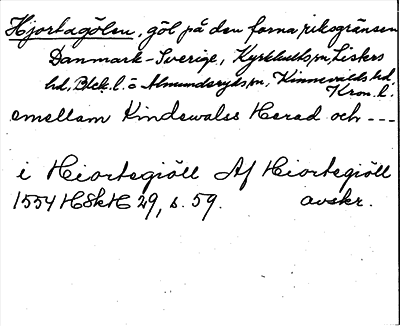 Hjortagölen, göl på den forna riksgränsen
Danmark-Sverige, Kyrkhults sn, Listers
hd, Blek. l. o Almundsryds sn, Kinnevalds hd
Kron. l.
emellam Kindewalss Herad och ---
i Hiortsgiöll Af Hiortsgiöll
1554 HSkH 29, s. 59. avskr.